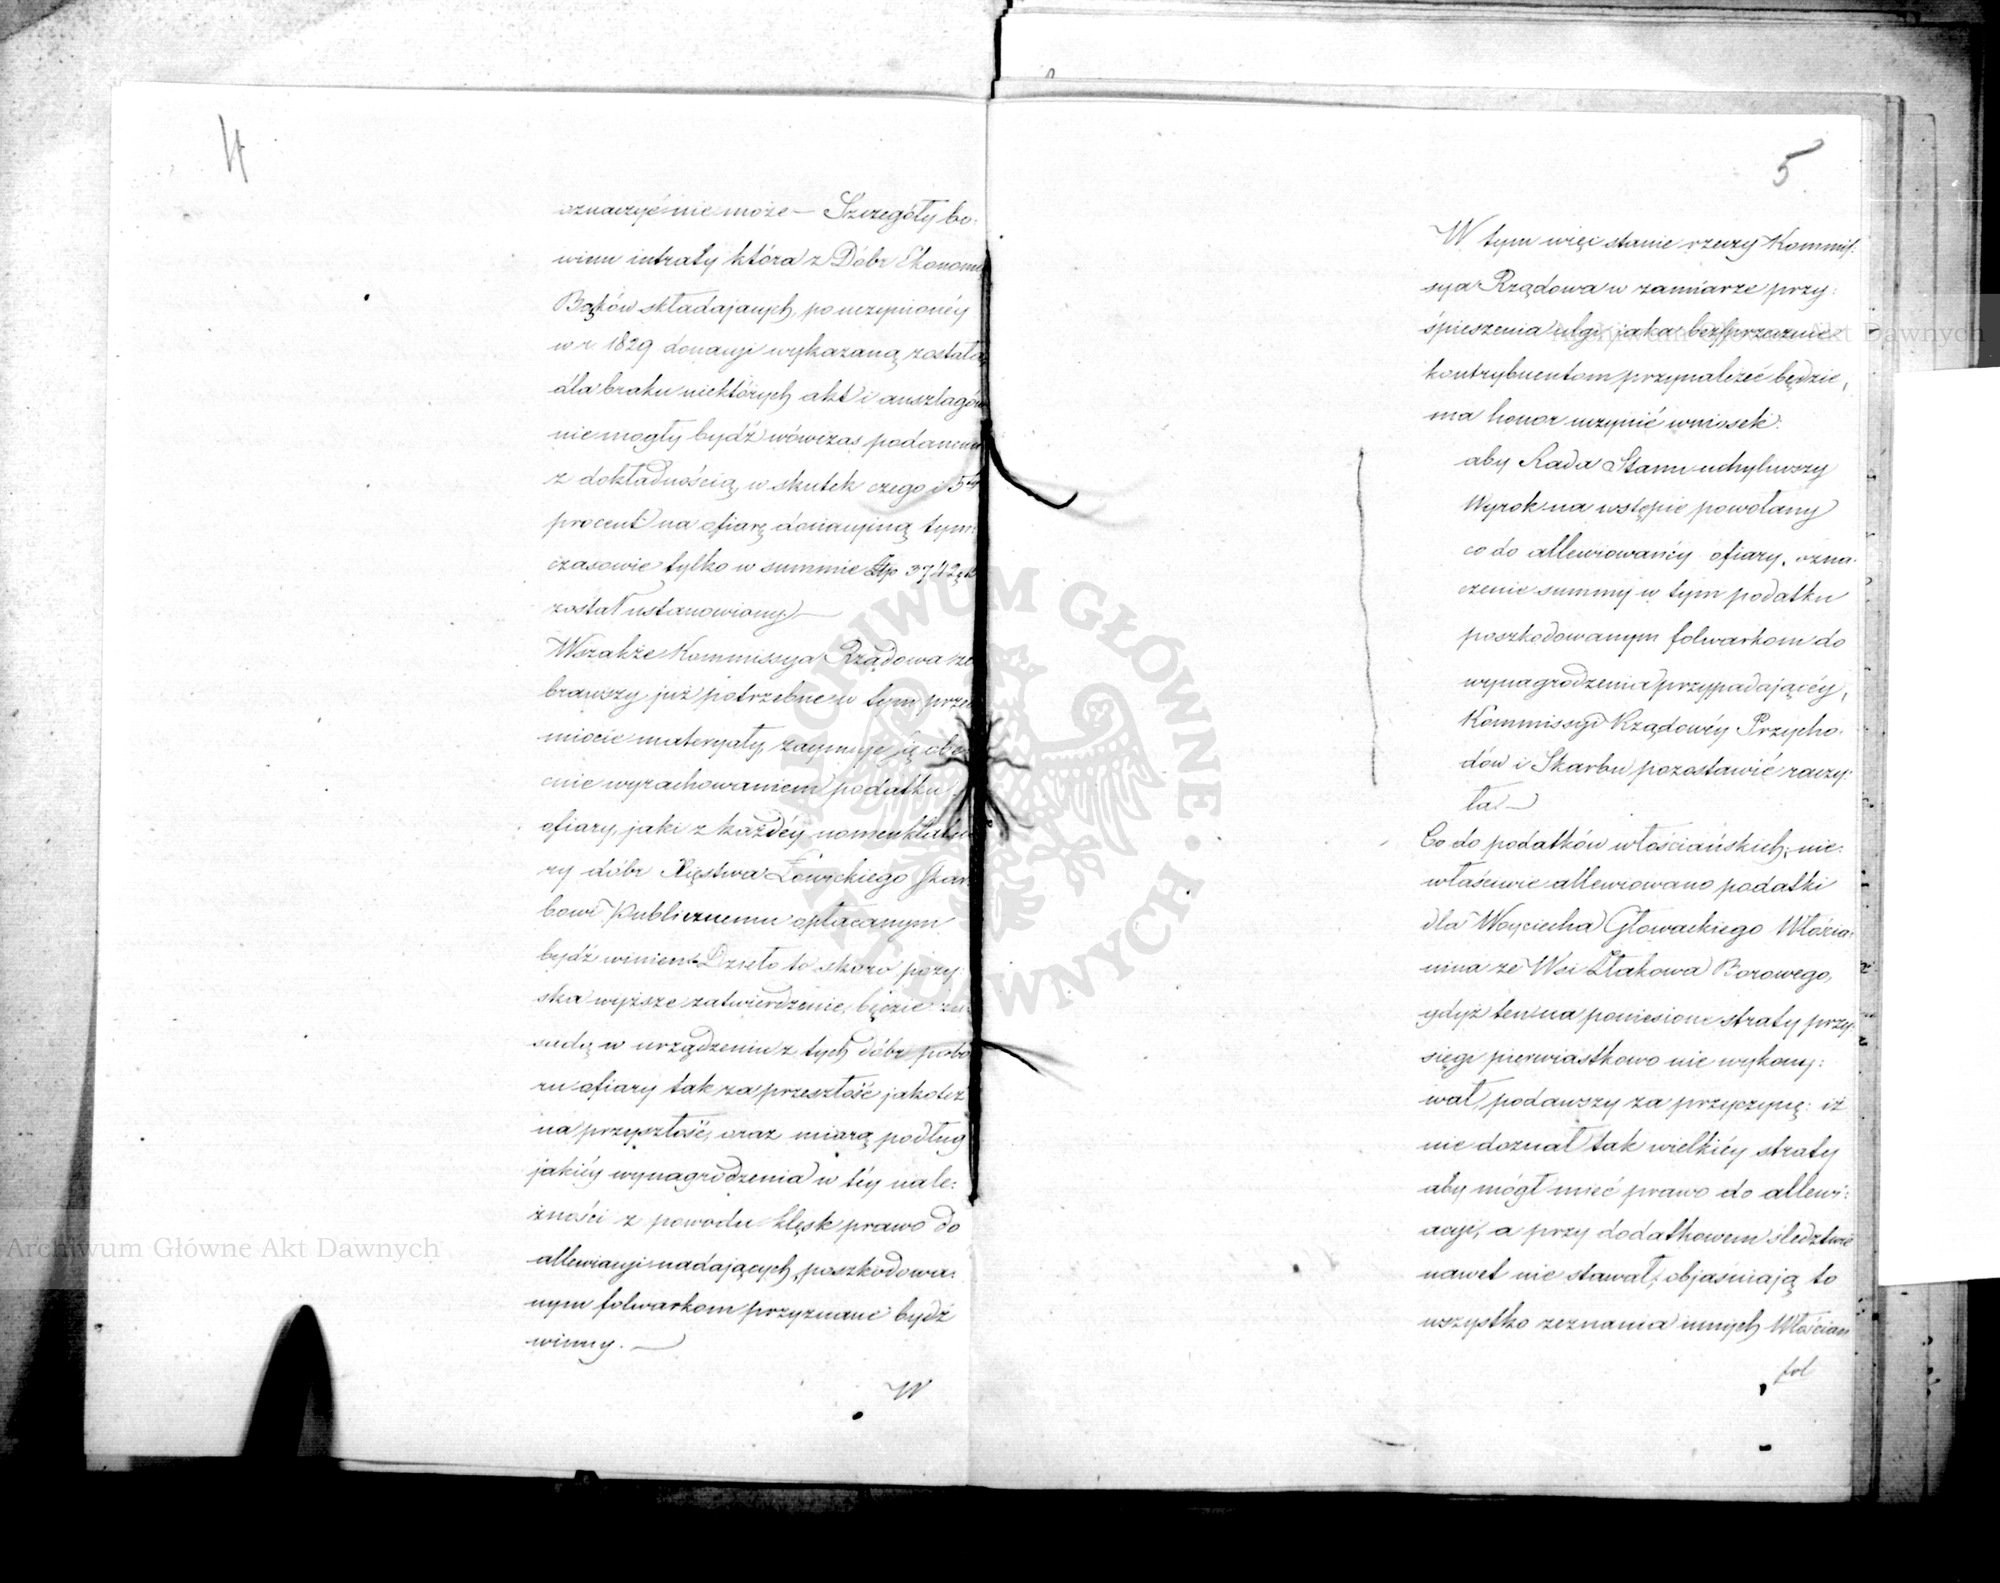 4
oznaczyć nie może — Szczegóły bo:
wiem intraty która z Dóbr Ekonomi
Bąków składaiących, po uczynionéy
w r. 1829 donacyi wykazaną została
dla braku niektórych akt i anszlagów
nie mogły bydź wówczas podanemi
z dokładnością, w skutek czego i 5ty
procent na ofiarę donacyiną tym:
czasowie tylko w summie Złp 3742
został ustanowiony —
Wszakże Kommissya Rządowa ze
brawszy już potrzebne w tym prze
miocie materyały, zaymuje się obe
cnie wyrachowaniem podatku
ofiary, jaki z każdéy nomenklatu
ry dóbr Xięstwa Łowickiego Skar
bowi Publicznemu opłacanym
bydź winien. Dzieło to skoro pozy:
ska wyższe zatwierdzenie, będzie za
sadą w urządzeniu z tych dóbr pobo
ru ofiary tak za przeszłość jakoteż
na przyszłość, oraz miarą podług
jakiéy wynagrodzenia w téy nale:
żności z powodu klęsk prawo do
allewiacyi nadających, poszkodowa:
nym folwarkom przyznane bydź
winny. —
W
5
W tym więc stanie rzeczy Kommis:
sya Rządowa w zamiarze przy:
śpieszenia ulgi, jaka bezsprzecznie
kontrybuentom przynależeć będzie,
ma honor uczynić wniosek:
aby Rada Stanu uchyliwszy
Wyrok na wstępie powołany
co do allewiowanéy ofiary, ozna:
czenie summy w tym podatku
poszkodowanym folwarkom do
wynagrodzenia przypadaiącéy,
Kommissyi Rządowéy Przycho:
dów i Skarbu pozostawić raczy:
ła. —
Co do podatków włościańskich; nie:
właściwie allewiowano podatki
dla Woyciecha Głowackiego Włościa:
nina ze Wsi Złakowa Borowego,
gdyż ten na poniesione straty przy:
sięgi pierwiastkowo nie wykony:
wał, podawszy za przyczynę: iż
nie doznał tak wielkiéy straty
aby mógł mieć prawo do allewi:
acyi, a przy dodatkowem śledztwie
nawet nie stawał, objaśniają to
wszystko zeznania innych Włościan
fol
Archiwum Główne Akt Dawnych
Archiwum Główne Akt Dawnych
ARCHIWUM GŁÓWNE · AKT DAWNYCH ·